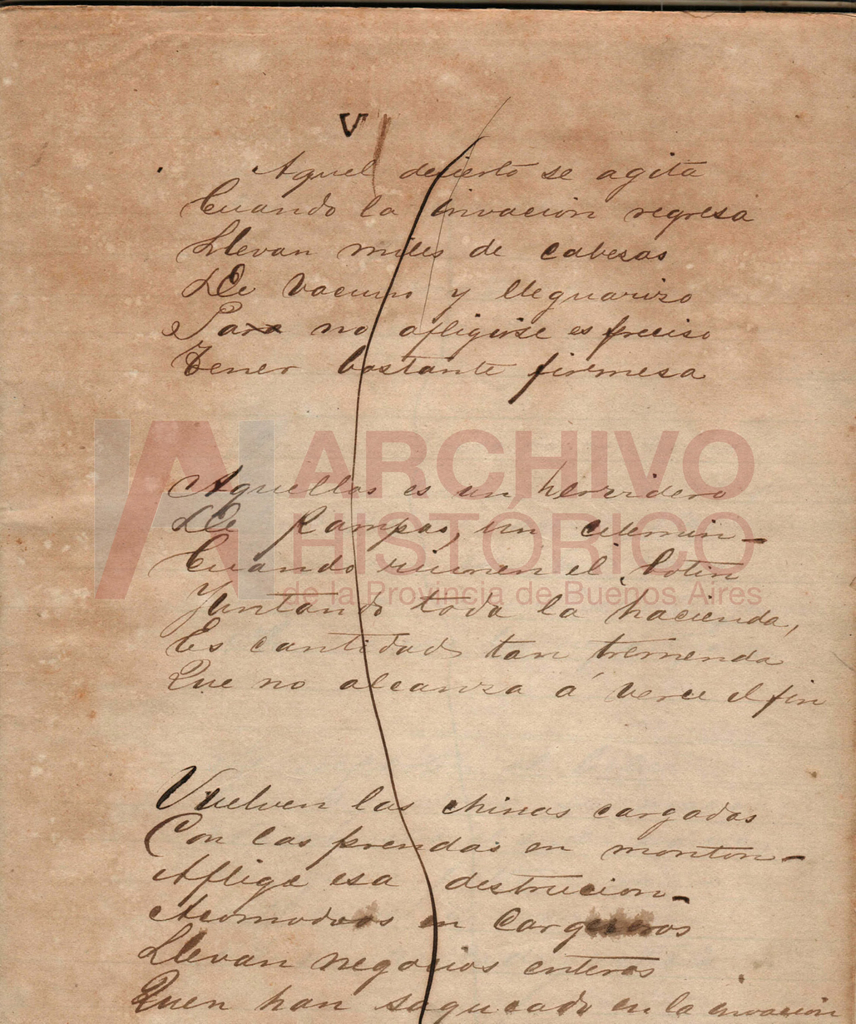 V
Aquel decierto se agita
Cuando la invacion regresa
Llevan miles de cabesas
De Vacuno y lleguariso
Para no afligirse es preciso
Tener bastante firmesa
ARCHIVO
HISTÓRICO
de la Provincia de Buenos Aires
Aquellos es un herbidero
De Pampas, un
Cuando riunen el botin
Juntando toda la hacienda,
Es cantidad tan tremenda
Que no alcanza á verce el fin
Vuelven las chinas cargadas
Con las prendas en monton—
Aflige esa destrucion—
Acomodaos en Cargueros
Llevan negocios enteros
Quen han saqueado en la invacion